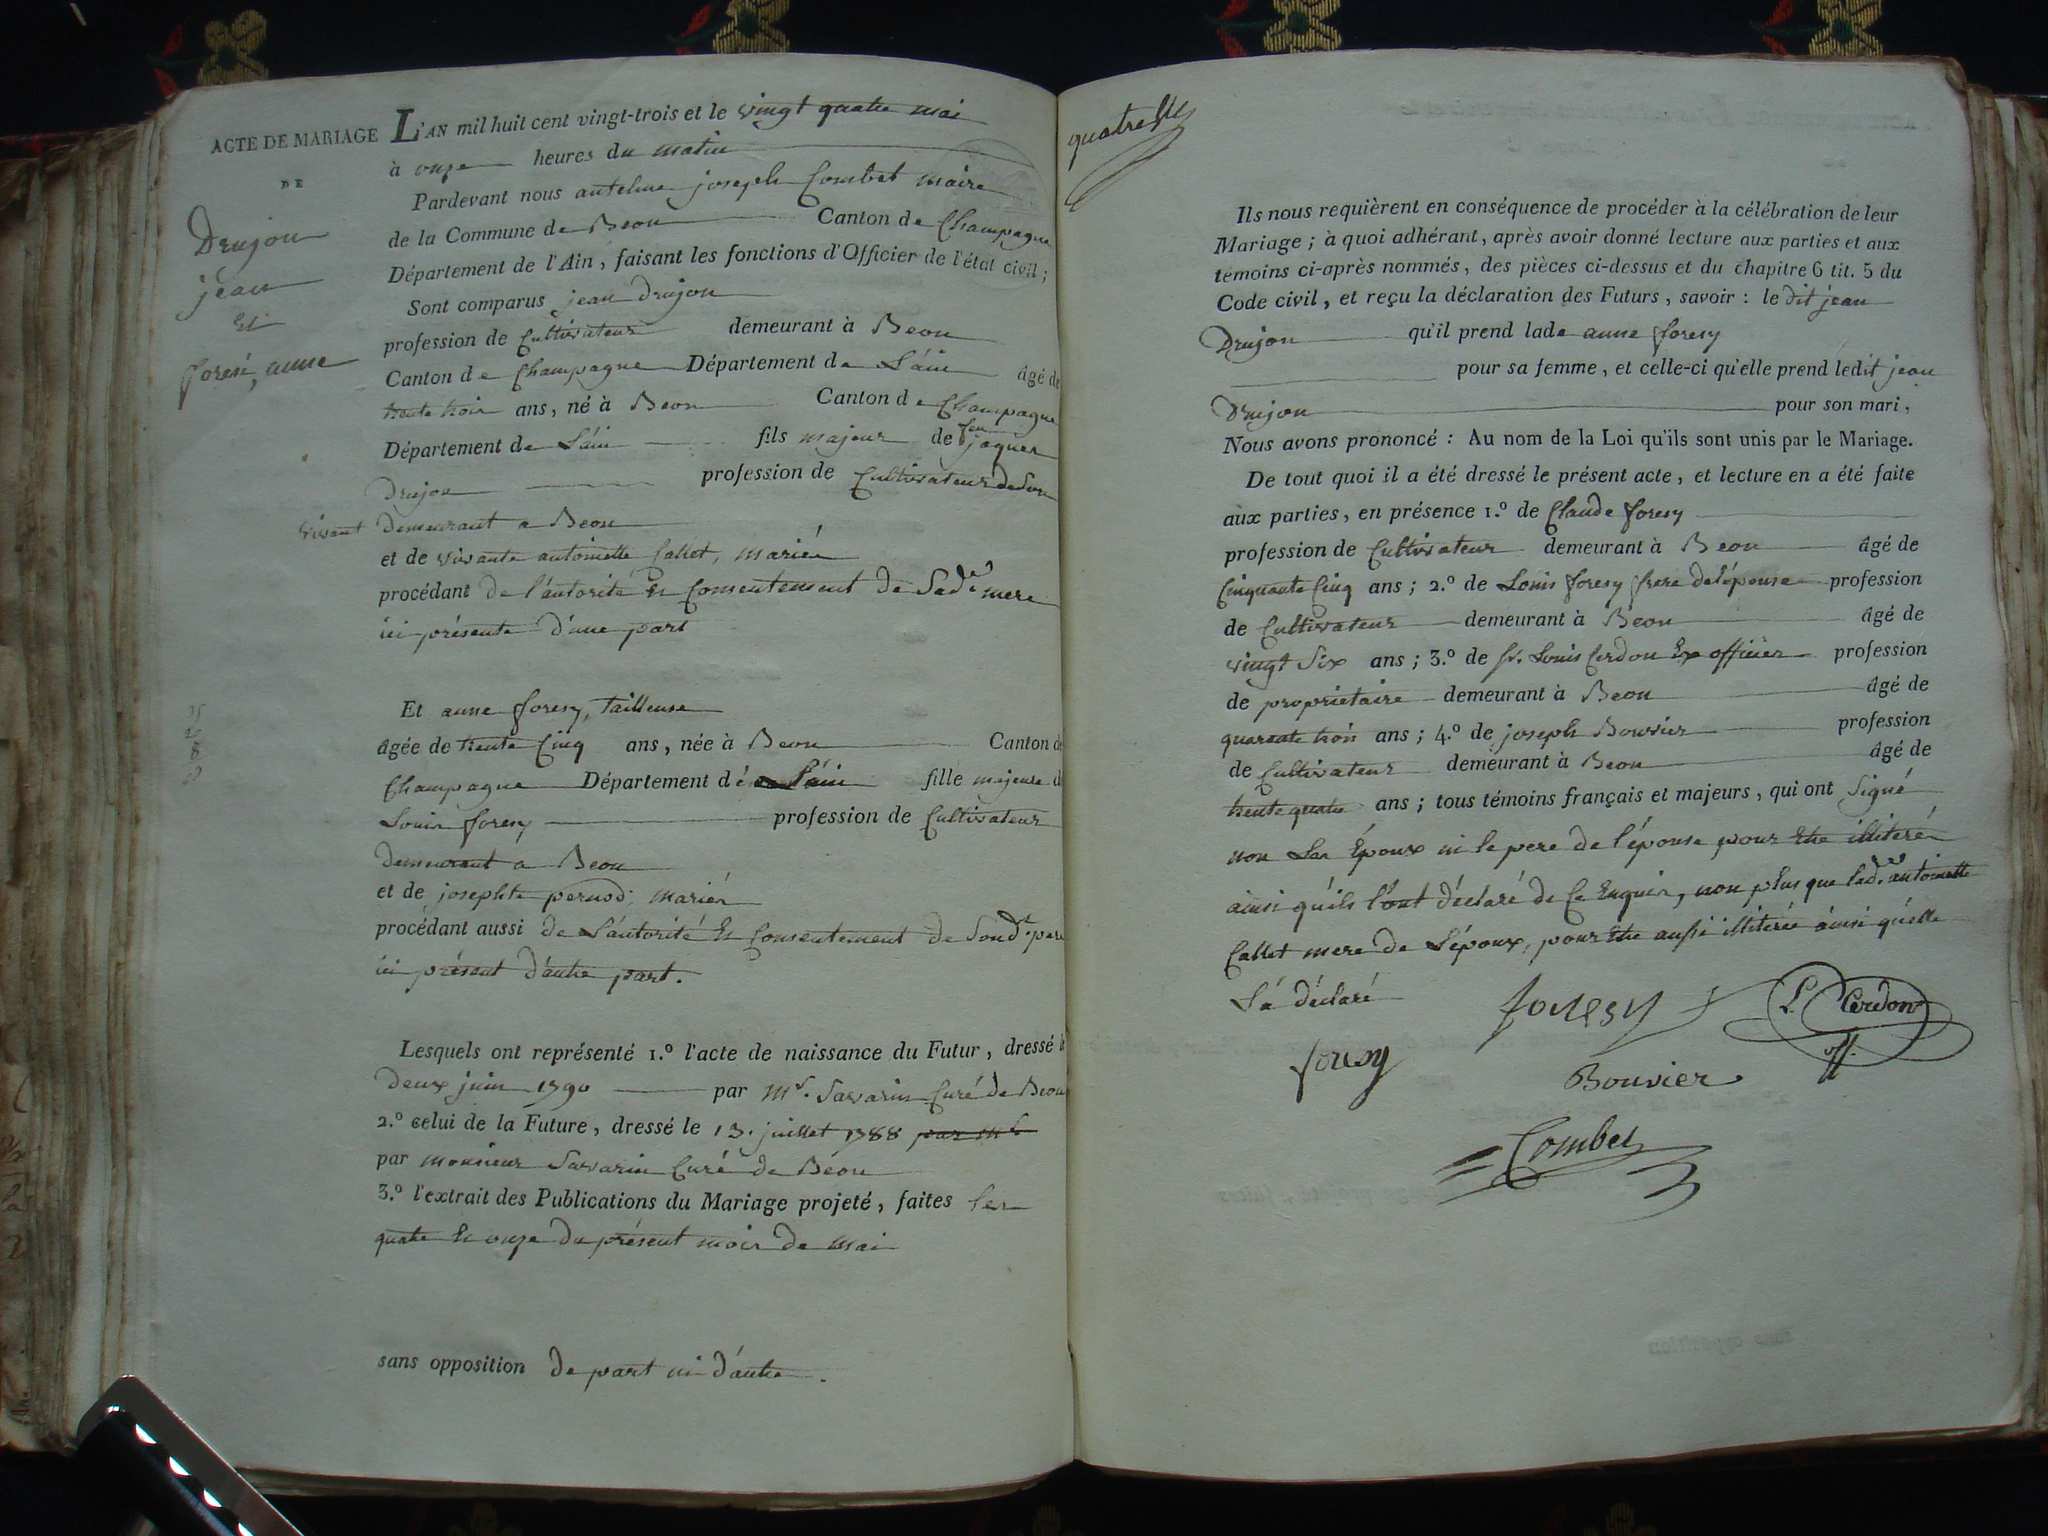 ACTE DE MARIAGE
DE
Drujon
jean
Et
foresi, anne
L'AN mil huit cent vingt-trois et le vingt quatre mai
à onze heures du matin
Pardevant nous antelme joseph Combet maire
de la Commune de Beon Canton de Champagne
Département de l'Ain, faisant les fonctions d'Officier de l'état civil;
Sont comparus jean Drujon
profession de Cultivateur demeurant à Beon
Canton de Champagne Département de L'áin âgé de
trente troix ans, né à Beon Canton de Champagne
Département de L'áin fils majeur de feu jaques
Drujon profession de Cultivateur de Son
vivant Demeurant a Beon
et de vivante antoinette Callet, mariés
procédant de l'autorité Et Consentement de Sade mere
ici présente d'une part
Et anne foresy, tailleuse
âgée de trente Cinq ans, née à Beon Canton de
Champagne Département de L'áin fille majeure de
Louis foresy profession de Cultivateur
demeurant a Beon
et de josephte pernod; mariés
procédant aussi de L'autorité Et Consentement de Sond. pere
ici présent d'autre part.
Lesquels ont représenté 1.º l'acte de naissance du Futur, dressé le
deux juin 1790 par Mr. Savarin Curé de Beon
2.º celui de la Future, dressé le 13. juillet 1788 par Mr
par monsieur Savarin Curé de Béon
3.º l'extrait des Publications du Mariage projeté, faites les
quatre Et onze du présent mois de mai
sans opposition de part ni d'autre.
Ils nous requièrent en conséquence de procéder à la célébration de leur
Mariage; à quoi adhérant, après avoir donné lecture aux parties et aux
témoins ci-après nommés, des pièces ci-dessus et du chapitre 6 tit. 5 du
Code civil, et reçu la déclaration des Futurs, savoir: le dit jean
Drujon qu'il prend lade anne foresy
pour sa femme, et celle-ci qu'elle prend ledit jean
Drujon pour son mari,
Nous avons prononcé: Au nom de la Loi qu'ils sont unis par le Mariage.
De tout quoi il a été dressé le présent acte, et lecture en a été faite
aux parties, en présence 1.º de Claude foresy
profession de Cultivateur demeurant à Beon âgé de
Cinquante Cinq ans; 2.º de Louis foresy frere de l'épouse profession
de Cultivateur demeurant à Béon âgé de
vingt Six ans; 3.º de Sr. Louis Cerdon Ex officier profession
de propriétaire demeurant à Beon âgé de
quarante trois ans; 4.º de joseph Bouvier profession
de Cultivateur demeurant à Beon âgé de
trente quatre ans; tous témoins français et majeurs, qui ont Signé
non Les Époux ni le pere de l'épouse pour Etre illiterés
ainsi qu'ils l'ont déclaré de Ce Enquis, non plus que lade. antoinette
Callet mere de L'époux, pour Etre aussi illiterée ainsi qu'elle
L'á déclaré
foresy
L. Cerdon
off.
foresy
Bouvier
Combet